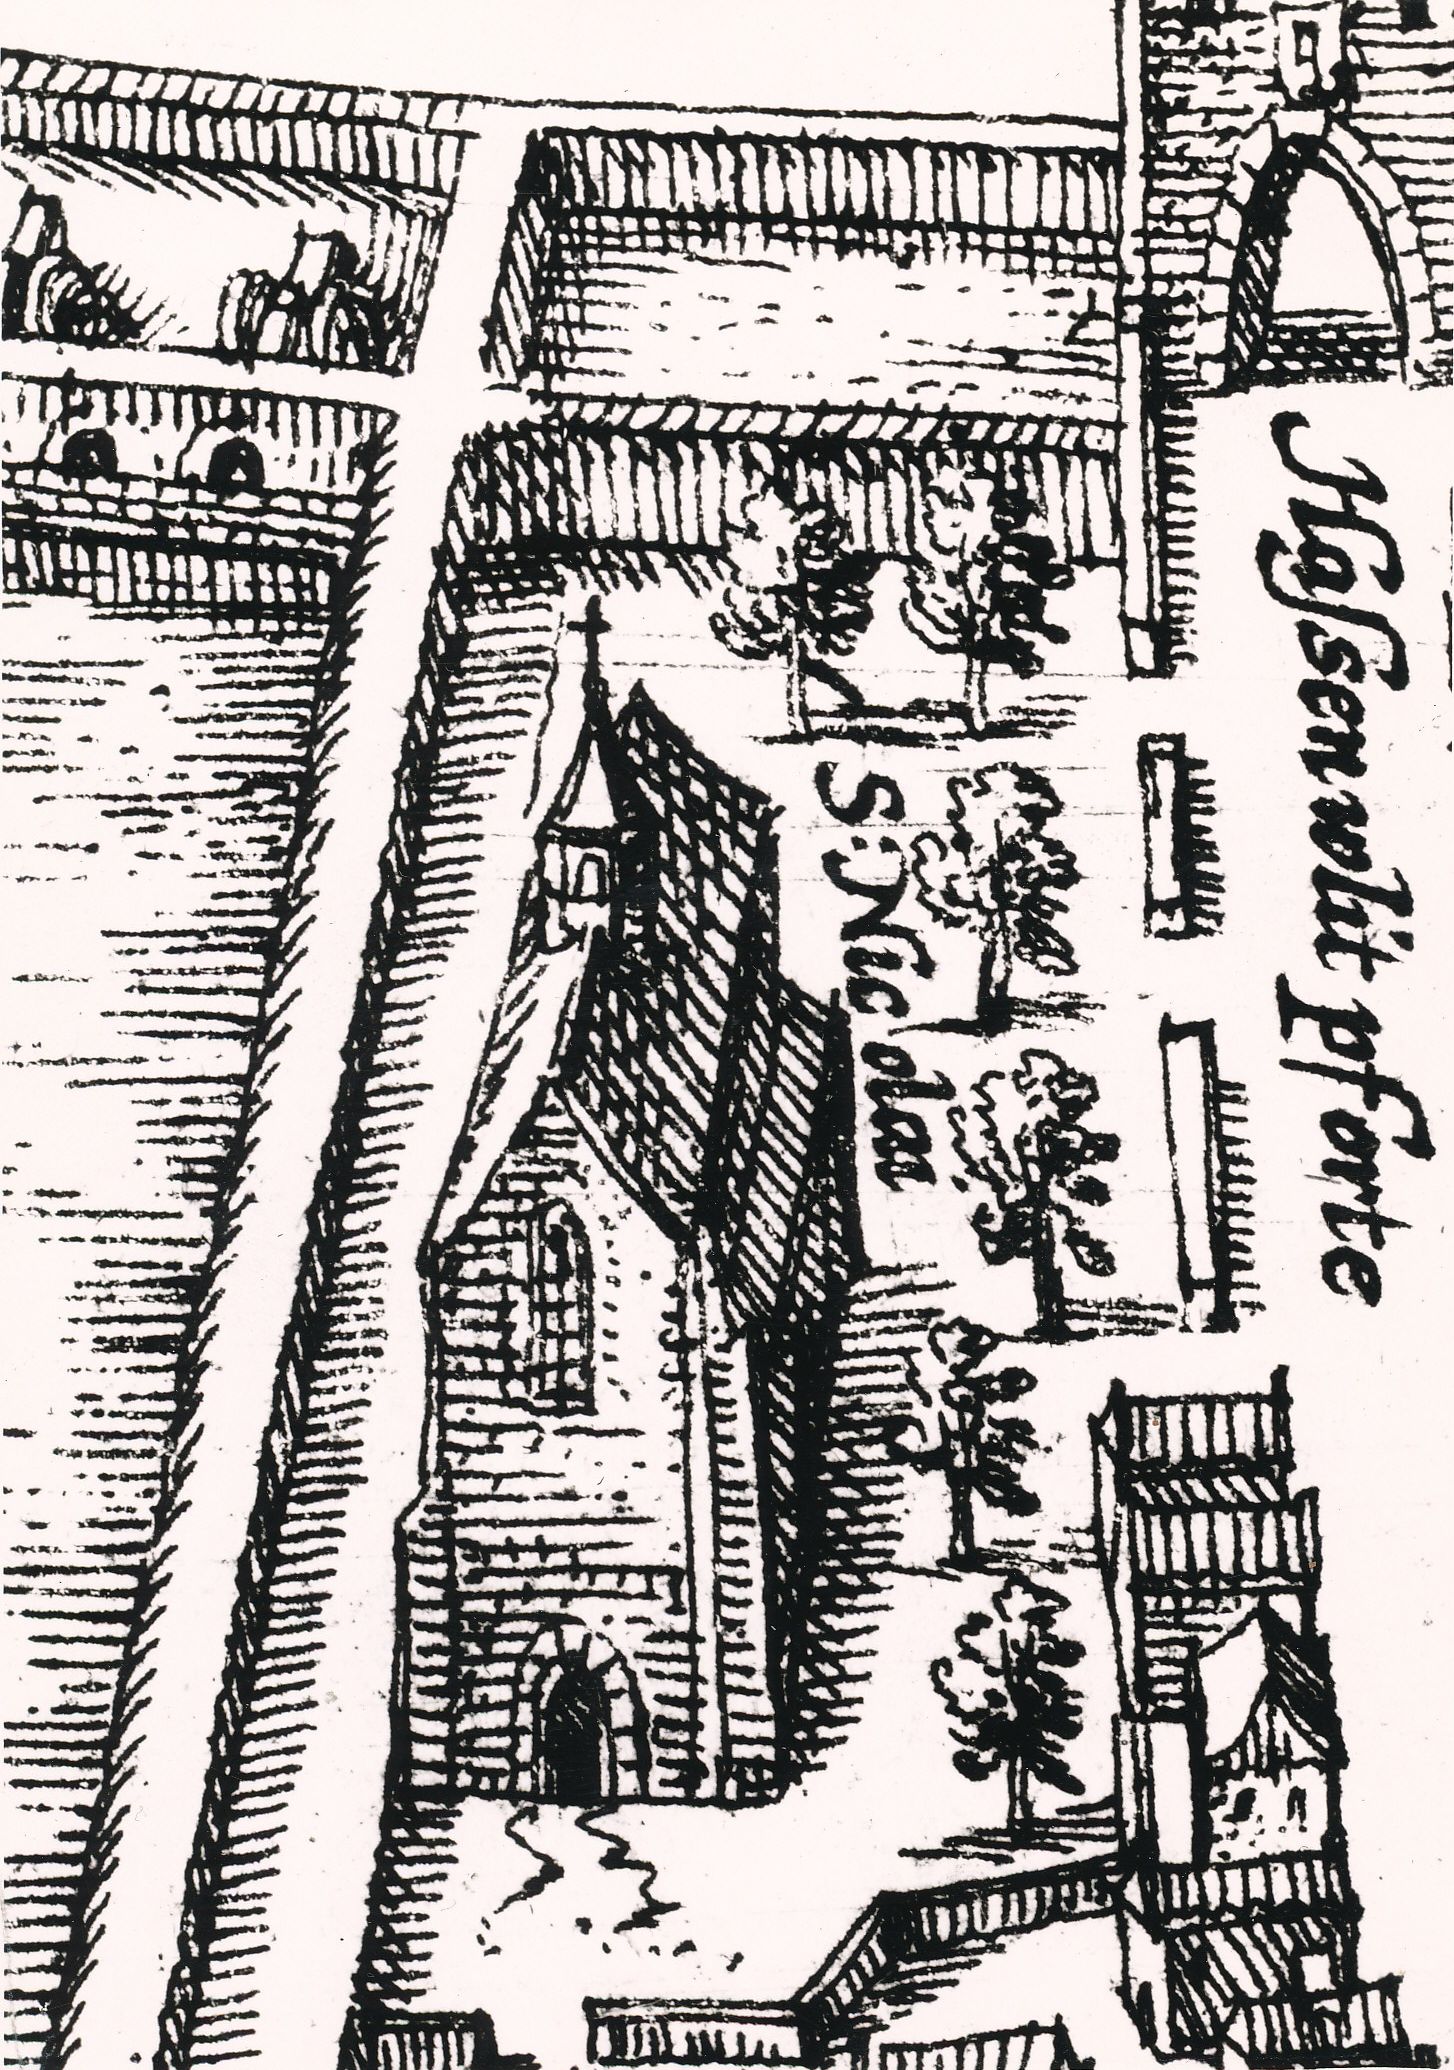 Haſsenwlit pforte
S: Nicolai